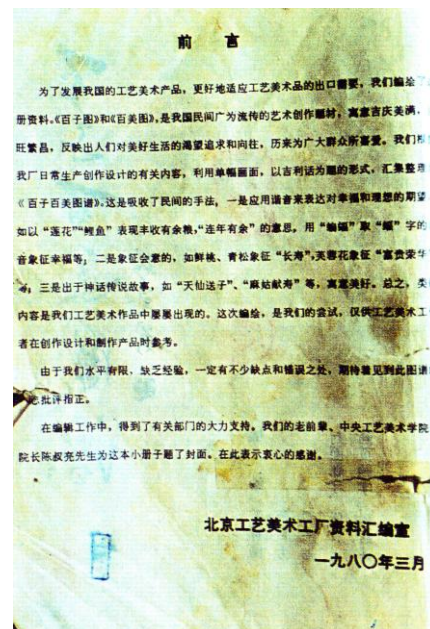 前 言
为了发展我国的工艺美术产品，更好地适应工艺美术品的出口需要，我们编绘了
册资料。《百子图》和《百美图》，是我国民间广为流传的艺术创作题材，寓意吉庆美满、
旺繁昌，反映出人们对美好生活的渴望追求和向往，历来为广大群众所喜爱。我们
我厂日常生产创作设计的有关内容，利用单幅画面，以吉利话为题的形式，汇集整理
《百子百美图谱》。这是吸收了民间的手法，一是应用谐音来表达对幸福和理想的期望
如以“莲花”“鲤鱼”表现丰收有余粮，“连年有余”的意思，用“蝙蝠”取“蝠”字的
音象征幸福等；二是象征会意的，如鲜桃、青松象征“长寿”，芙蓉花象征“富贵荣华”
等；三是出于神话传说故事，如“天仙送子”、“麻姑献寿”等，寓意美好。总之，类
内容是我们工艺美术作品中屡屡出现的。这次编绘，是我们的尝试，仅供工艺美术工
者在创作设计和制作产品时参考。
由于我们水平有限、缺乏经验，一定有不少缺点和错误之处，期待着见到此图谱
批评指正。
在编辑工作中，得到了有关部门的大力支持。我们的老前辈、中央工艺美术学院
院长陈叔亮先生为这本小册子题了封面。在此表示衷心的感谢。
北京工艺美术工厂资料汇编室
一九八〇年三月